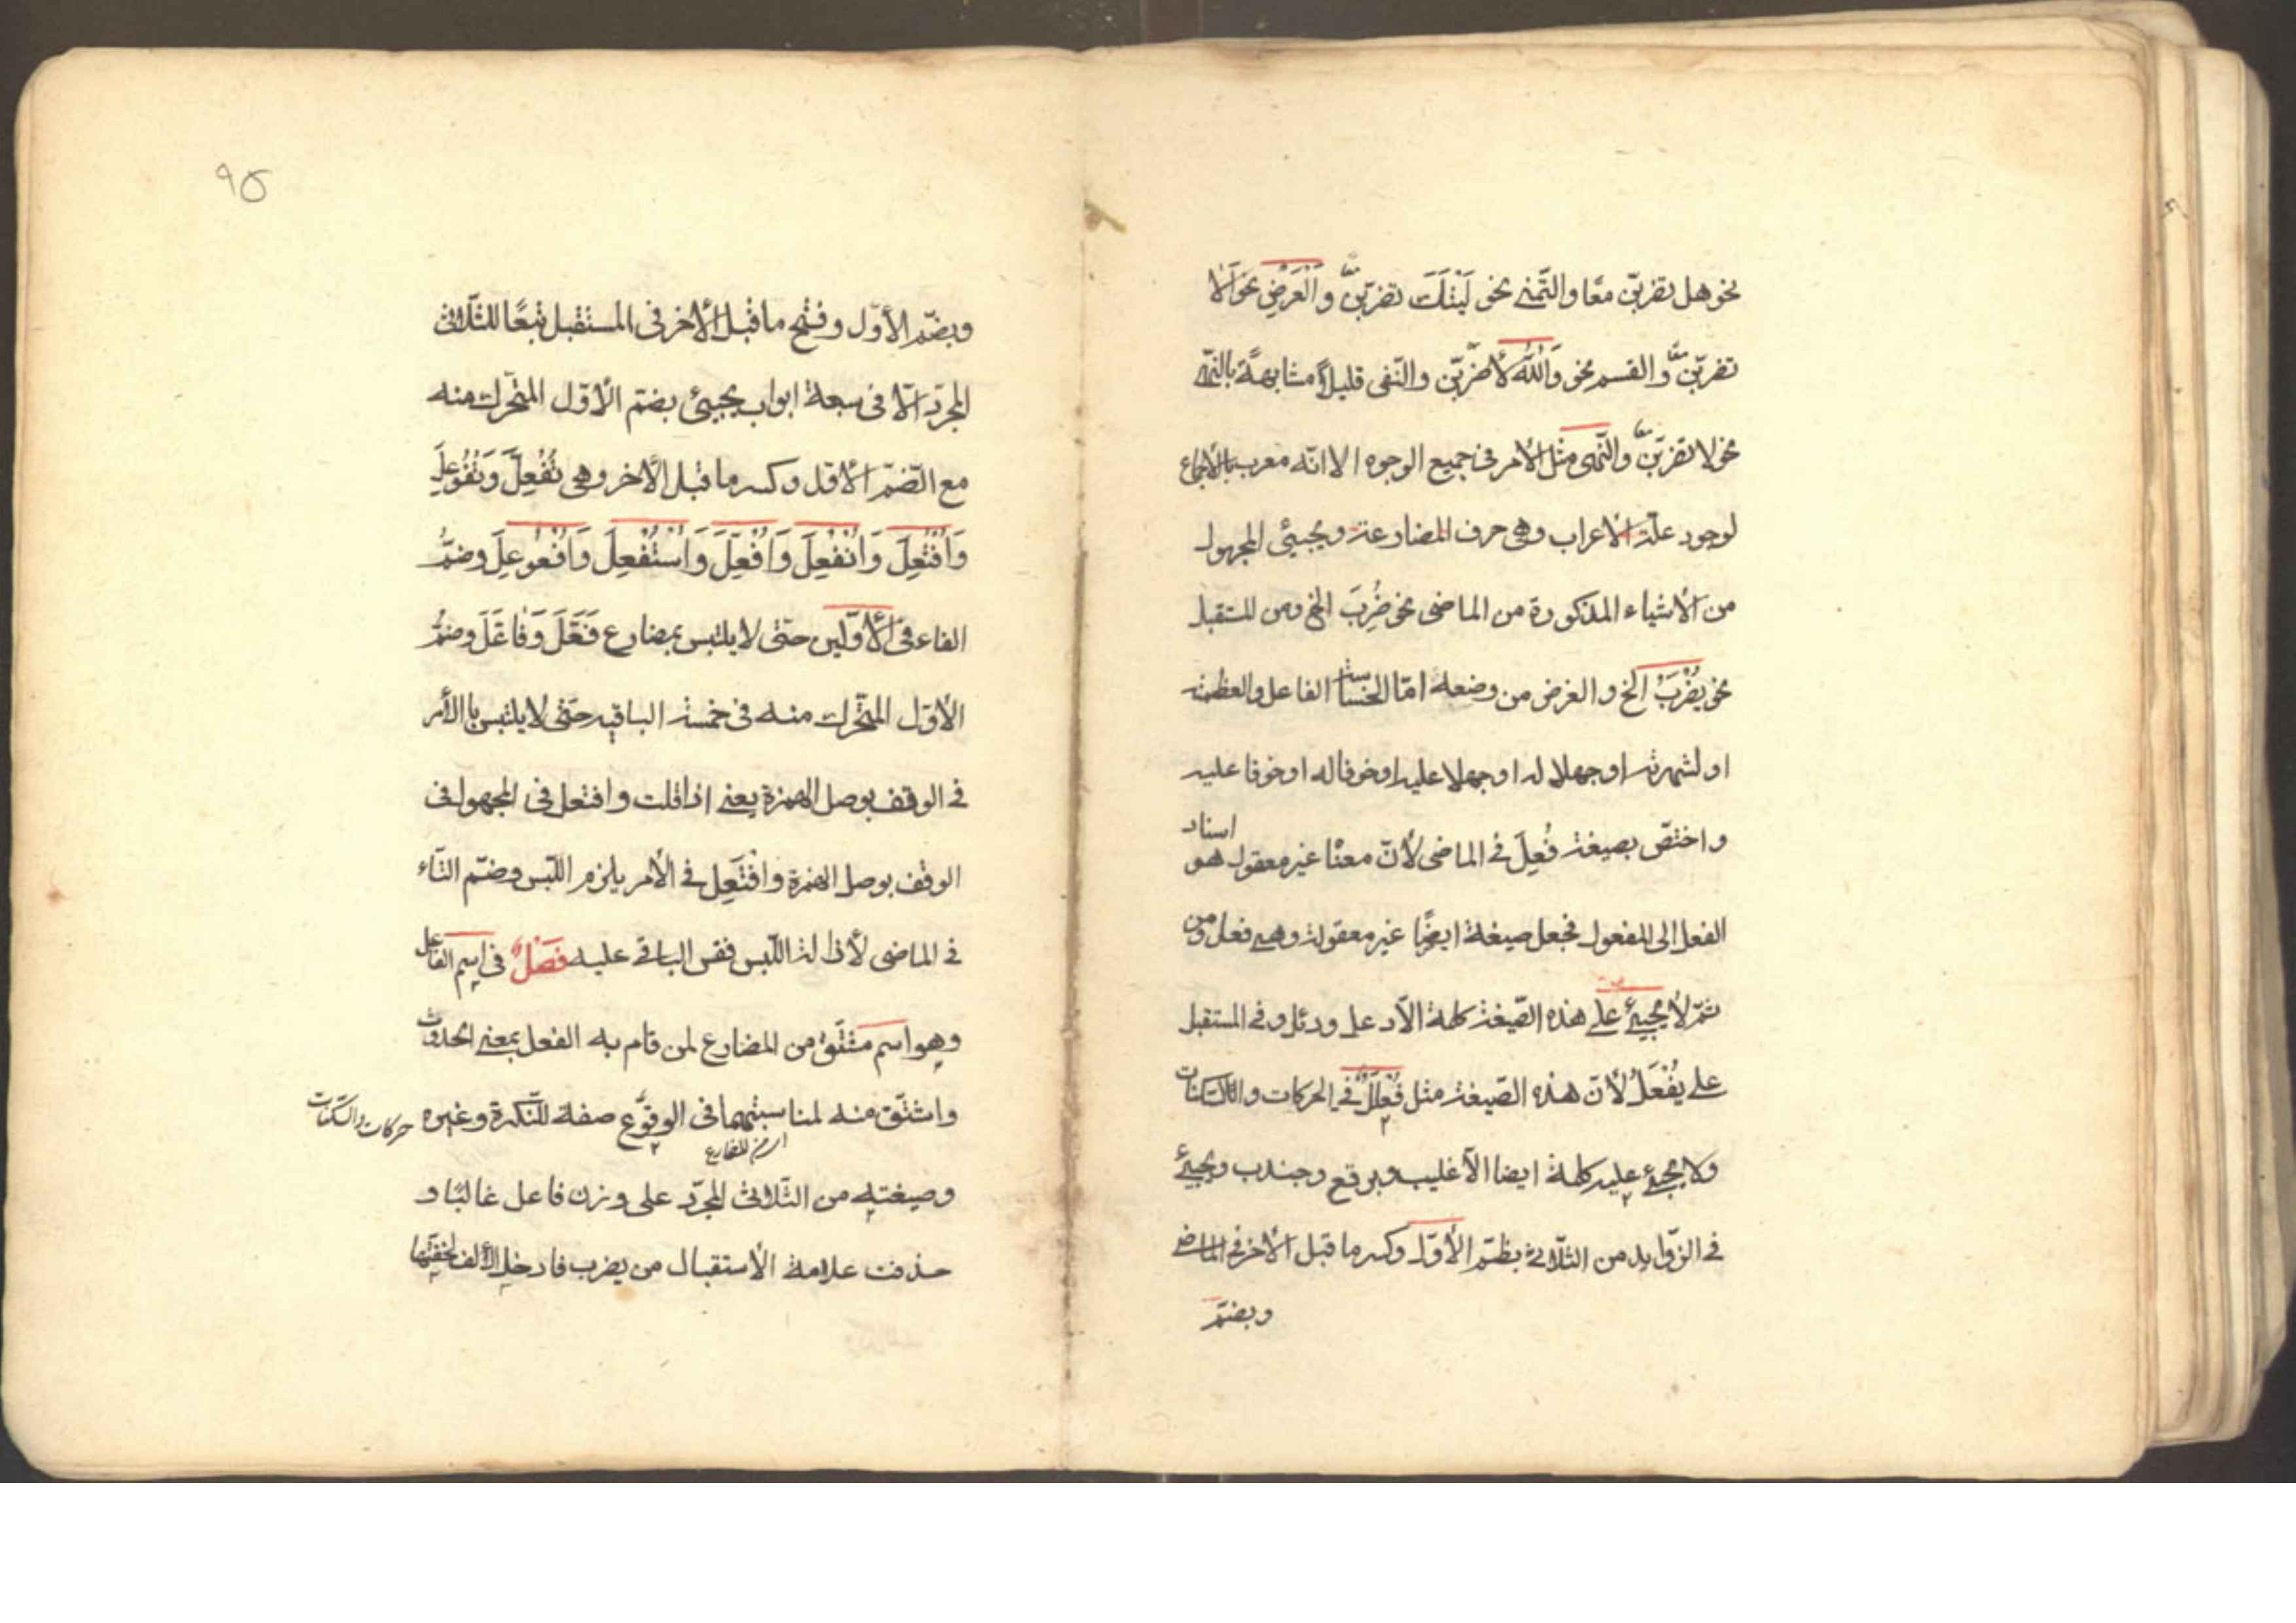 نحو هل تضربنّ معًا والتّمنى نحو لَيْتَكَ تضربنّ معًا والْعَرْضِ نحو اَلَا
تضربنّ معًا والقسم نحو وَاللهِ لَأضربنّ والنّفى قليلًا مشابهةً بالنّهى
نحو لا تضربنّ معًا والنّهى مثل الأمر فى جميع الوجوه الا انّه معرب بالأجماع
لوجود علّة الاعراب وهى حرف المضارعة ويجيئ المجهول
من الأشياء المذكورة من الماضى نحو ضُرِبَ الخ ومن المستقبل
نحو يُضْرَبُ الخ والغرض من وضعه امّا لخساسة الفاعل والعظمته
او لشهرته او جهلا له او جهلا عليه او خوفا له او خوفا عليه
واختصّ بصيغة فُعِلَ فى الماضى لأنّ معنا غير معقول هو اسناد
الفعل الى المفعول فجعل صيغة ايضًا غير معقولة وهى فعل ومن
ثمّ لا يجيئ على هذه الصّيغة كلمة الّا دعل ودئل وفى المستقبل
على يُفْعَلُ لأنّ هذه الصّيغة مثل فُعْلَلٌ فى الحركات والسّكنات
ولا يجيئ عليه كلمة ايضا الّا غليب وبرقع وجندب ويجيئ
فى الزّوايد من الثّلاثى بضمّ الأوّل وكسر ما قبل الأخر فى الماضى
وبضمّ
٩٥
وبضمّ الأوّل وفتح ما قبل الأخر فى المستقبل تبعًا للثّلاثى
المجرّد الّا فى سبعة ابواب يجيئ بضمّ الأوّل المتحّرك منه
مع الضّمّ الأوّل وكسر ما قبل الأخر وهى تُفُعِّلَ وَتُفُوعِلَ
وَاُفْتُعِلَ وَاُنْفُعِلَ وَاُفْعُلَّ وَاُسْتُفْعِلَ وَاُفْعُوعِلَ وضمُّ
الفاء فى الأوّلين حتّى لا يلتبس بمضارع فَعَّلَ وَفَاعَلَ وضمُّ
الأوّل المتحّرك منه فى خمسة الباقيه حتّى لا يلتبس باالأمر
فى الوقف بوصل الهمزة يعنى اذا قلت وافتعل فى المجهول فى
الوقف بوصل الهمزة وافْتَعِل فى الأمر يلزم اللّبس وضمّ التّاء
فى الماضى لأزالة اللّبس فقس الباقى عليه فَصْلٌ فى اسم الفاعل
وهو اسم مشتقّ من المضارع لمن قام به الفعل بمعنى الحدوث
واشتقّ منه لمناسبتهما فى الوقوع صفة للنّكرة وغيره حركات والسّكنات
اسم المضارع
وصيغته من الثّلاثى المجرّد على وزن فاعل غالبًا و
حذفت علامة الأستقبال من يضرب فادخل الألف لخفّتها